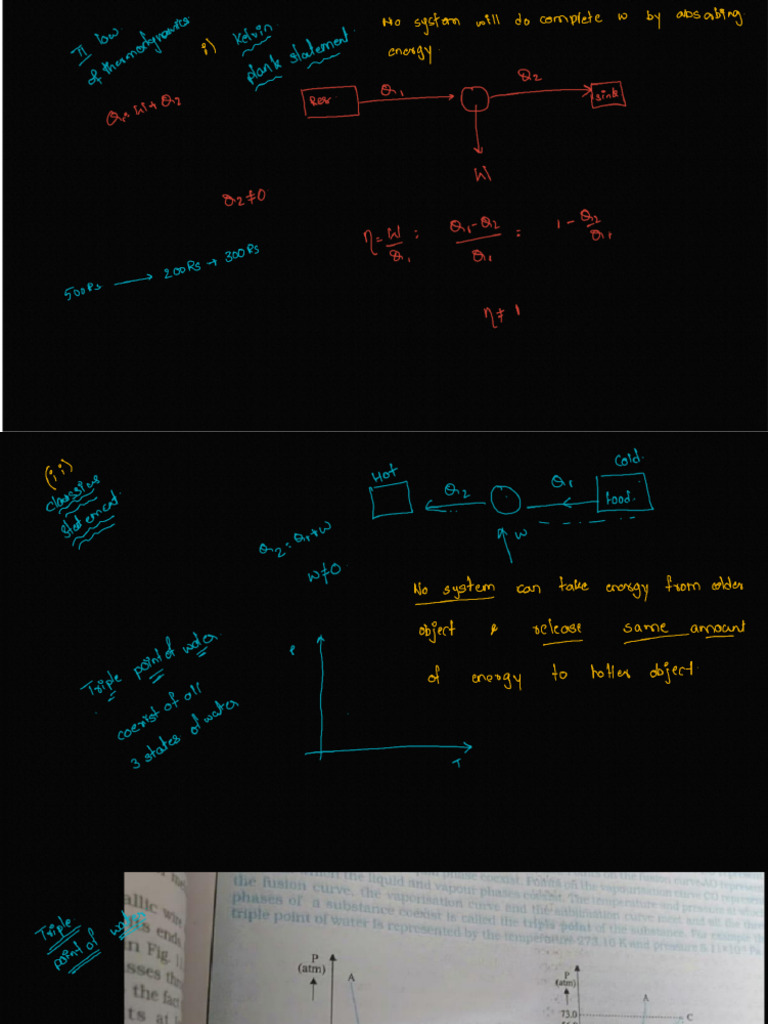 II law
of thermodynamics
i) Kelvin
plank statement
No system will do complete w by absorbing
energy.
Q1 = W + Q2
Res.
Q1
Q2
sink
W
Q2 ≠ 0
η = W/Q1 = Q1-Q2/Q1 = 1 - Q2/Q1
500Rs → 200Rs + 300Rs
η ≠ 1
(ii)
classius
statement.
Hot
Cold.
Q2
Q1
food.
Q2 = Q1+W
W
W≠0
No system can take energy from colder
object & release same amount
of energy to hotter object.
Triple point of water
coexist of all
3 states of water
P
T
Triple
point of water
the liquid and vapour phases coexist. Points on the vaporisation curve CO represent
the fusion curve, the vaporisation curve and the sublimation curve meet and all the three
phases of a substance coexist is called the triple point of the substance. For example the
triple point of water is represented by the temperature 273.16 K and pressure
allic
ends
n Fig.
sses the
the fact
ts at
P
(atm)
A
P
(atm)
A
73.0
C